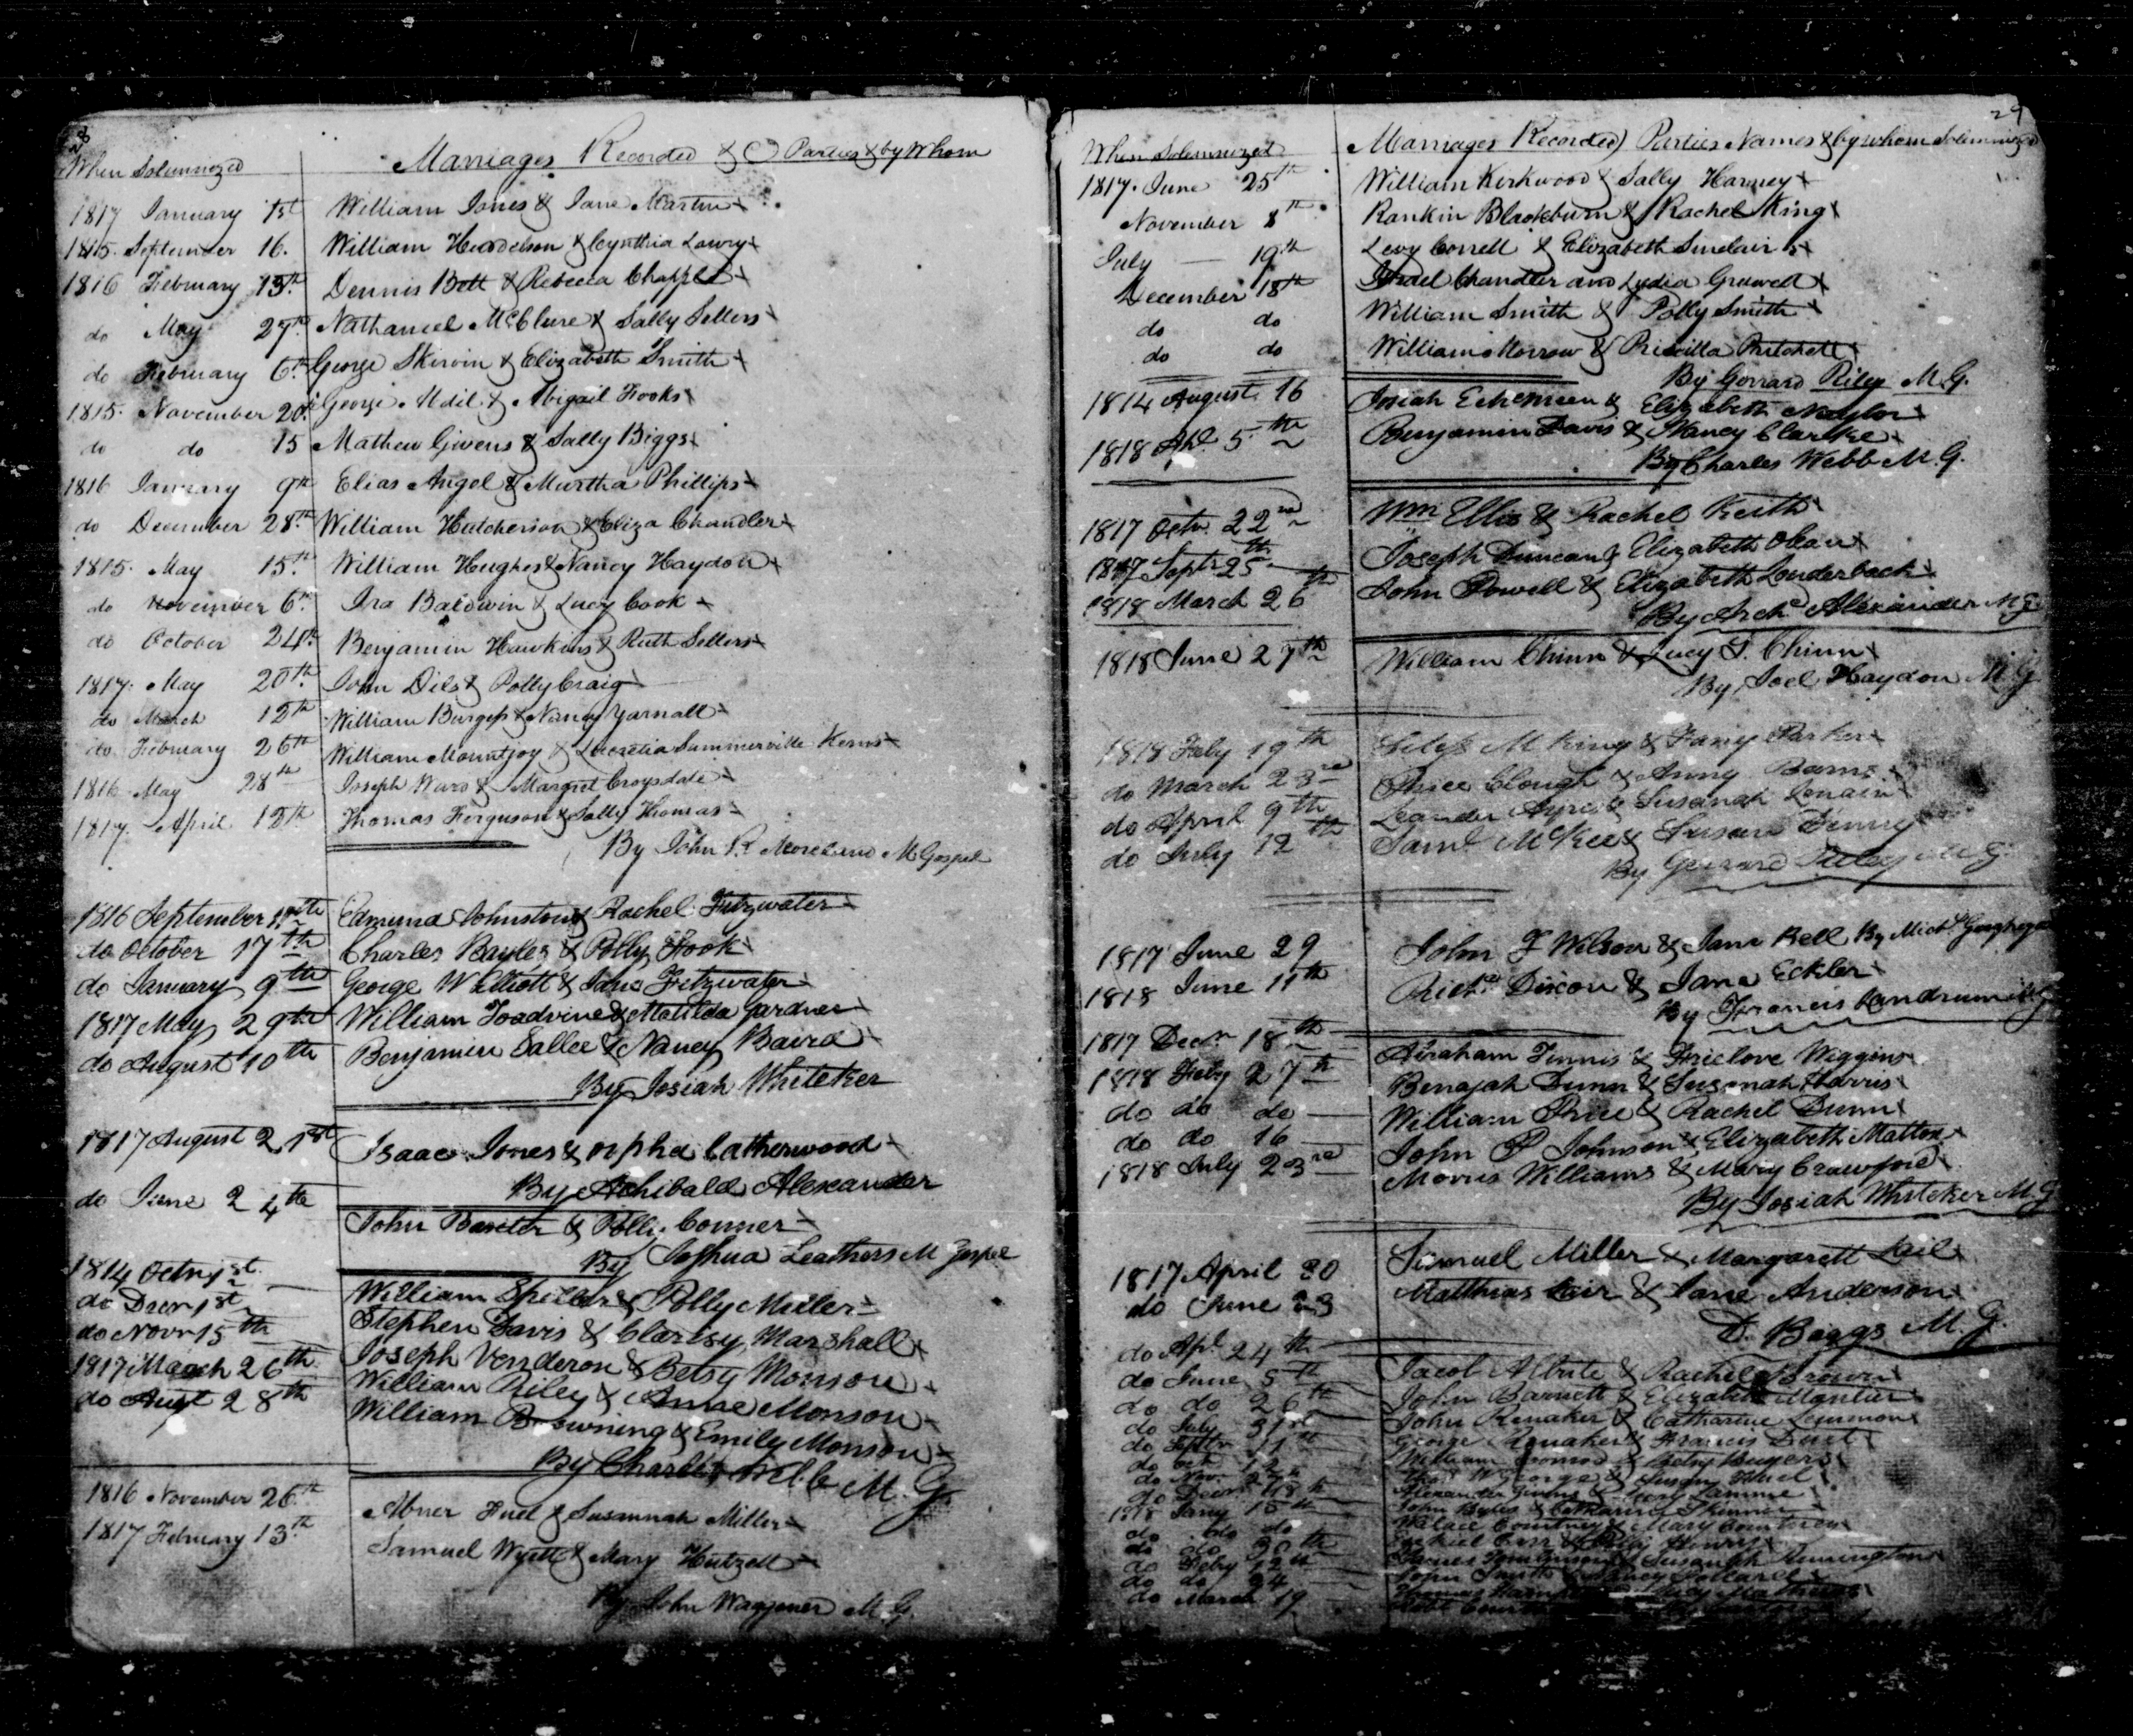 28
When Solemnized Marriages Recorded & Parties & by Whom
1817 January 1st William Jones & Jane Martin
1815. September 16. William Hendelson & Cynthia Lowry
1816 February 13th Dennis Bett & Rebecca Chapple
do May 27th Nathaniel McClure & Sally Sellers
do February 6th George Skirvin & Elizabeth Smith
1815. November 20th George Udil & Abigail Hooks
do do 15 Mathew Givens & Sally Biggs
1816 January 9th Elias Angel & Murtha Phillips
do December 28th William Hutcherson & Eliza Chandler
1815. May 15th William Hughes & Nancy Haydon
do November 6th Ira Baldwin & Lucy Cook
do October 24th Benjamin Hawkins & Ruth Sellers
1817. May 20th John Dils & Polly Craig
do March 12th William Burgess & Nancy Yarnall
do February 26th William Mountjoy & Lucretia Summerville Kerns
1816 May 28th Joseph Ward & Margret Croysdale
1817. April 12th Thomas Ferguson & Sally Thomas
By John R. Moreland M Gospel
1816 September Edmund Johnston & Rachel Fitzwater
do October 17th Charles Bayles & Polly Hook
do January 9th George W Elliott & Jane Fitzwater
1817 May 29th William Toadvine & Matilda Gardner
do August 10th Benjamin Sallee & Nancy Baird
By Josiah Whiteker
1817 August 21st Isaac Jones & Orpha Catherwood
By Achibald Alexander
do June 24th John Baxter & Polly Conner
By Joshua Leathers M Gospel
1814 Octr 1st William Spillers & Polly Miller
do Decr 1st Stephen Davis & Claresy Marshall
do Novr 15th Joseph Venderon & Betsy Monson
1817 March 26th William Riley & Anne Monson
do Augt 28th William Browning & Emily Monson
By Charles Webb M. G
1816 November 26th Abner Huel & Susannah Miller
1817 February 13th Samuel Wyett & Mary Hutzell
By John Waggener M. G.
29
When Solemnized Marriages Recorded Parties Names & by whom Solemnized
1817. June 25th William Kirkwood & Sally Harney
November 8th Rankin Blackburn & Rachel King
July 19th Levy Correll & Elizabeth Sinclair
December 18th Israel Chandler and Lydia Gruwell
do do William Smith & Polly Smith
do do William Morrow & Priscilla Pritchett
By Gerrard Riley M. G.
1814 August 16 Josiah & Elizabeth Naylor
1818 Apl 5th Benjamin Davis & Nancy Clarke
By Charles Webb M. G.
1817 Octr 22nd Wm Ellis & Rachel Keith
1817 Septr 25th Joseph Duncan & Elizabeth
1818 March 26th John Powell & Elizabeth Louderback
By Archd Alexander M G
1818 June 27th William Chinn & Lucy T. Chinn
By Joel Haydon M G
1818 July 19th M King & Fanny Parker
do March 23rd Price Clough & Anny Barns
do April 9th Leander Ayres & Susanah
do July 12th Saml McKee & Susan Denny
By Gerrard Riley M. G.
1817 June 29 John F Wilson & Jane Bell By Michl
1818 June 11th Richd Dixon & Jane Eckler
By Francis Landrum M G
1817 Decr 18th Abraham Finnis & Freelove Wiggins
1818 Feby 27th Benajah Dunn & Susanah Harris
do do do William Price & Rachel Dunn
do do 16 John P Johnson & Elizabeth Mattox
1818 July 23rd Morris Williams & Mary Crawford
By Josiah Whiteker M. G
1817 April 30 Samuel Miller & Margarett Lail
do June 23 Matthias Lair & Jane Anderson
D. Biggs M. G.
do Apl 24th Jacob & Rachel Brown
do June 5th John Barnett & Elizabeth
do do 26th John Renaker & Catharine Lemmon
do July 31st George Renaker & Francis
do Septr 11th William & Betsy
do Octr 12 George & Susan Huel
do Novr Alexander &
do Decr 18th John & Catharine Skinner
1818 Jany 15th Courtney & Mary Courtney
do do do & Polly
do do 30th James & Susanah
do Feby 12th John Smith & Nancy
do do 24 Thomas & Lucy
do March 19